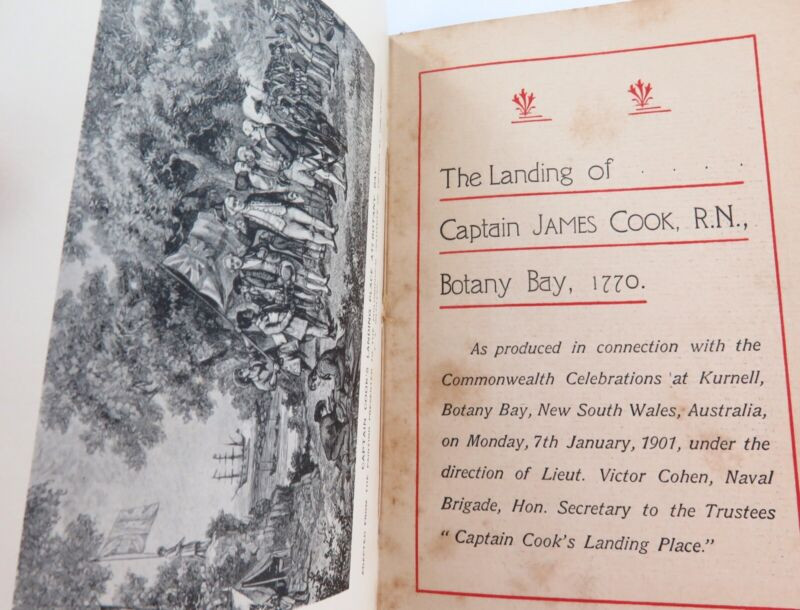 CAPTAIN COOK'S LANDING PLACE AT BOTANY BAY.
ADAPTED FROM THE PAINTING
The Landing of . . . .
Captain JAMES COOK, R.N.,
Botany Bay, 1770.
As produced in connection with the
Commonwealth Celebrations at Kurnell,
Botany Bay, New South Wales, Australia,
on Monday, 7th January, 1901, under the
direction of Lieut. Victor Cohen, Naval
Brigade, Hon. Secretary to the Trustees
"Captain Cook's Landing Place."